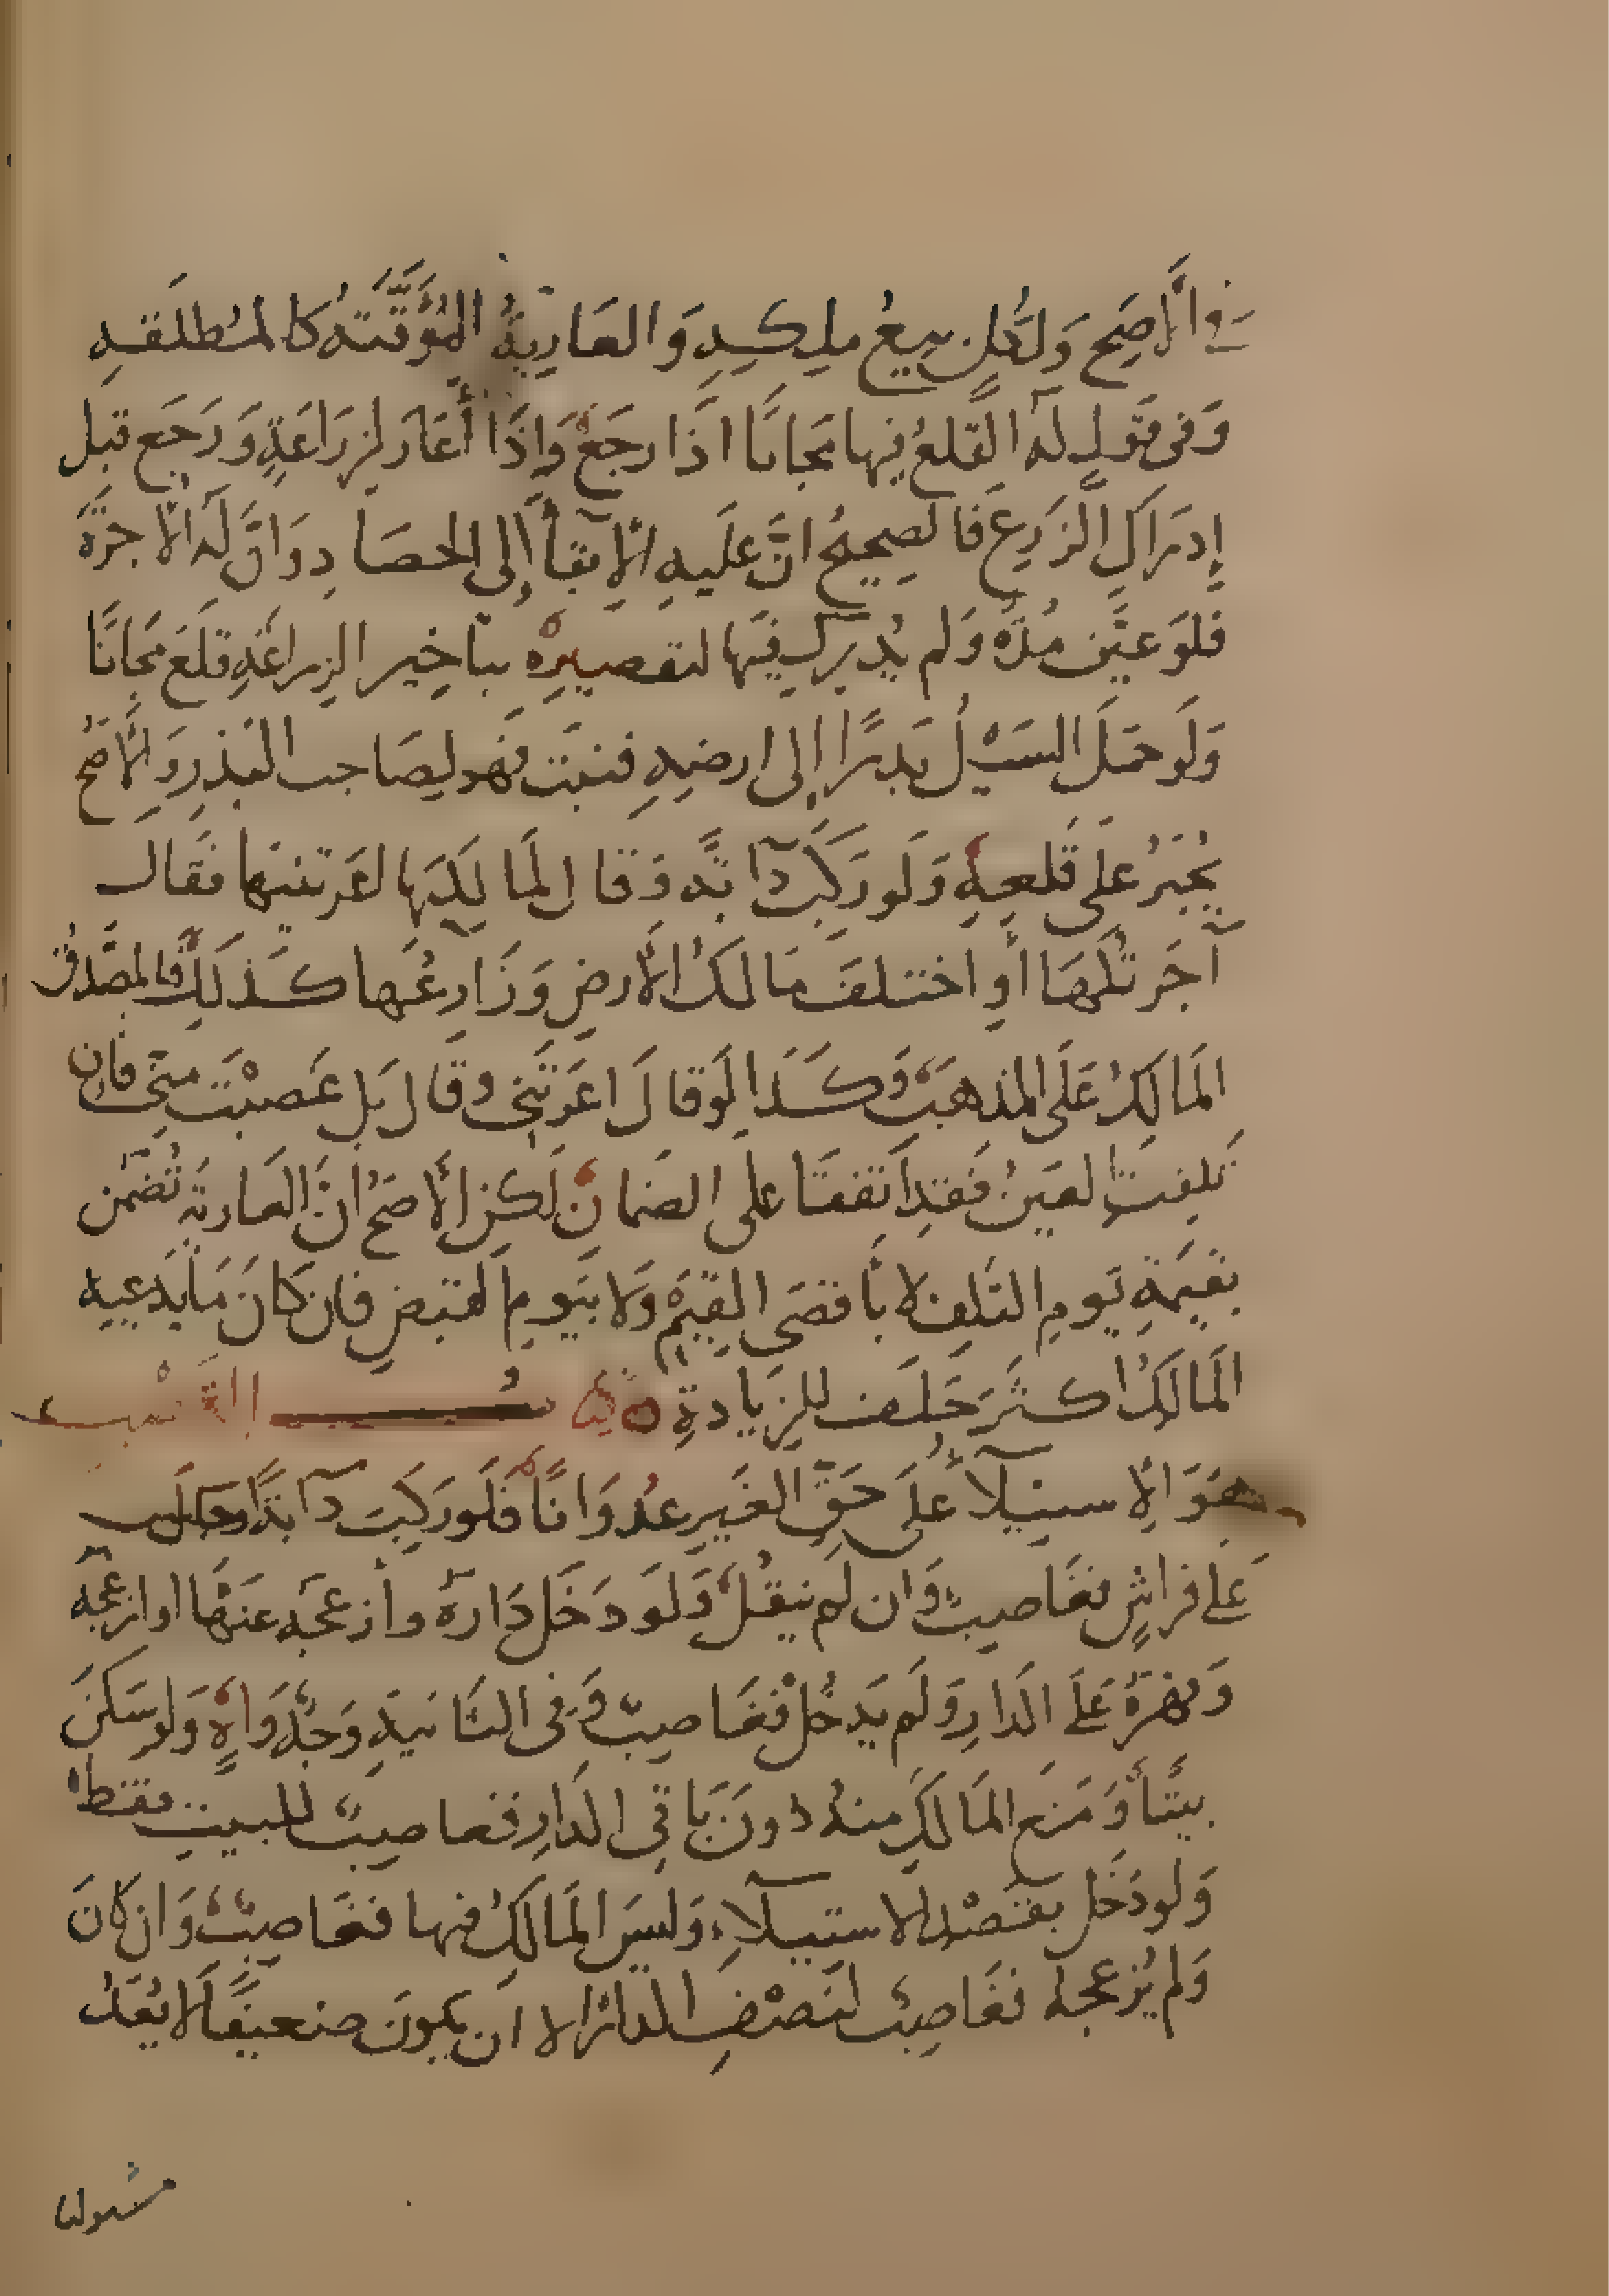 في الاصح ولكل بيع ملكه والعارية المؤقتة كالمطلقة
وفي قول له القلع فيها مجانا اذا رجع واذا أعار لزراعة ورجع قبل
إدراك الزرع فالصحيح ان عليه الابقاء إلى الحصاد وان له الاجرة
فلو عين مدة ولم يدرك فيها لتقصيره بتاخير الزراعة قلع مجانا
ولو حمل السيل بذرا إلى ارضه فنبت فهو لصاحب البذر والاصح
يجبر على قلعه ولو ركب دابة وقال لمالكها اعرتنيها فقال
آجرتكها أو اختلف مالك الارض وزارعها كذلك فالمصدق
المالك على المذهب وكذا لو قال اعرتني وقال بل غصبت مني فان
تلفت العين فقد اتفقا على الضمان لكن الاصح ان العارية تضمن
بقيمة يوم التلف لا بأقصى القيم ولا بيوم القبض فان كان ما يدعيه
المالك اكثر حلف للزيادة كتاب الغصب
هو الاستيلاء على حق الغير عدوانا فلو ركب دابة او جلس
على فراش فغاصب وان لم ينقل ولو دخل داره وأزعجه عنها او ازعجه
وقهره على الدار ولم يدخل فغاصب وفي الثانية وجه واه ولو سكن
بيتا ومنع المالك منه دون باقي الدار فغاصب للبيت فقط
ولو دخل بقصد الاستيلاء وليس المالك فيها فغاصب وان كان
ولم يزعجه فغاصب لنصف الدار الا ان يكون ضعيفا لا يعد
مستوليا